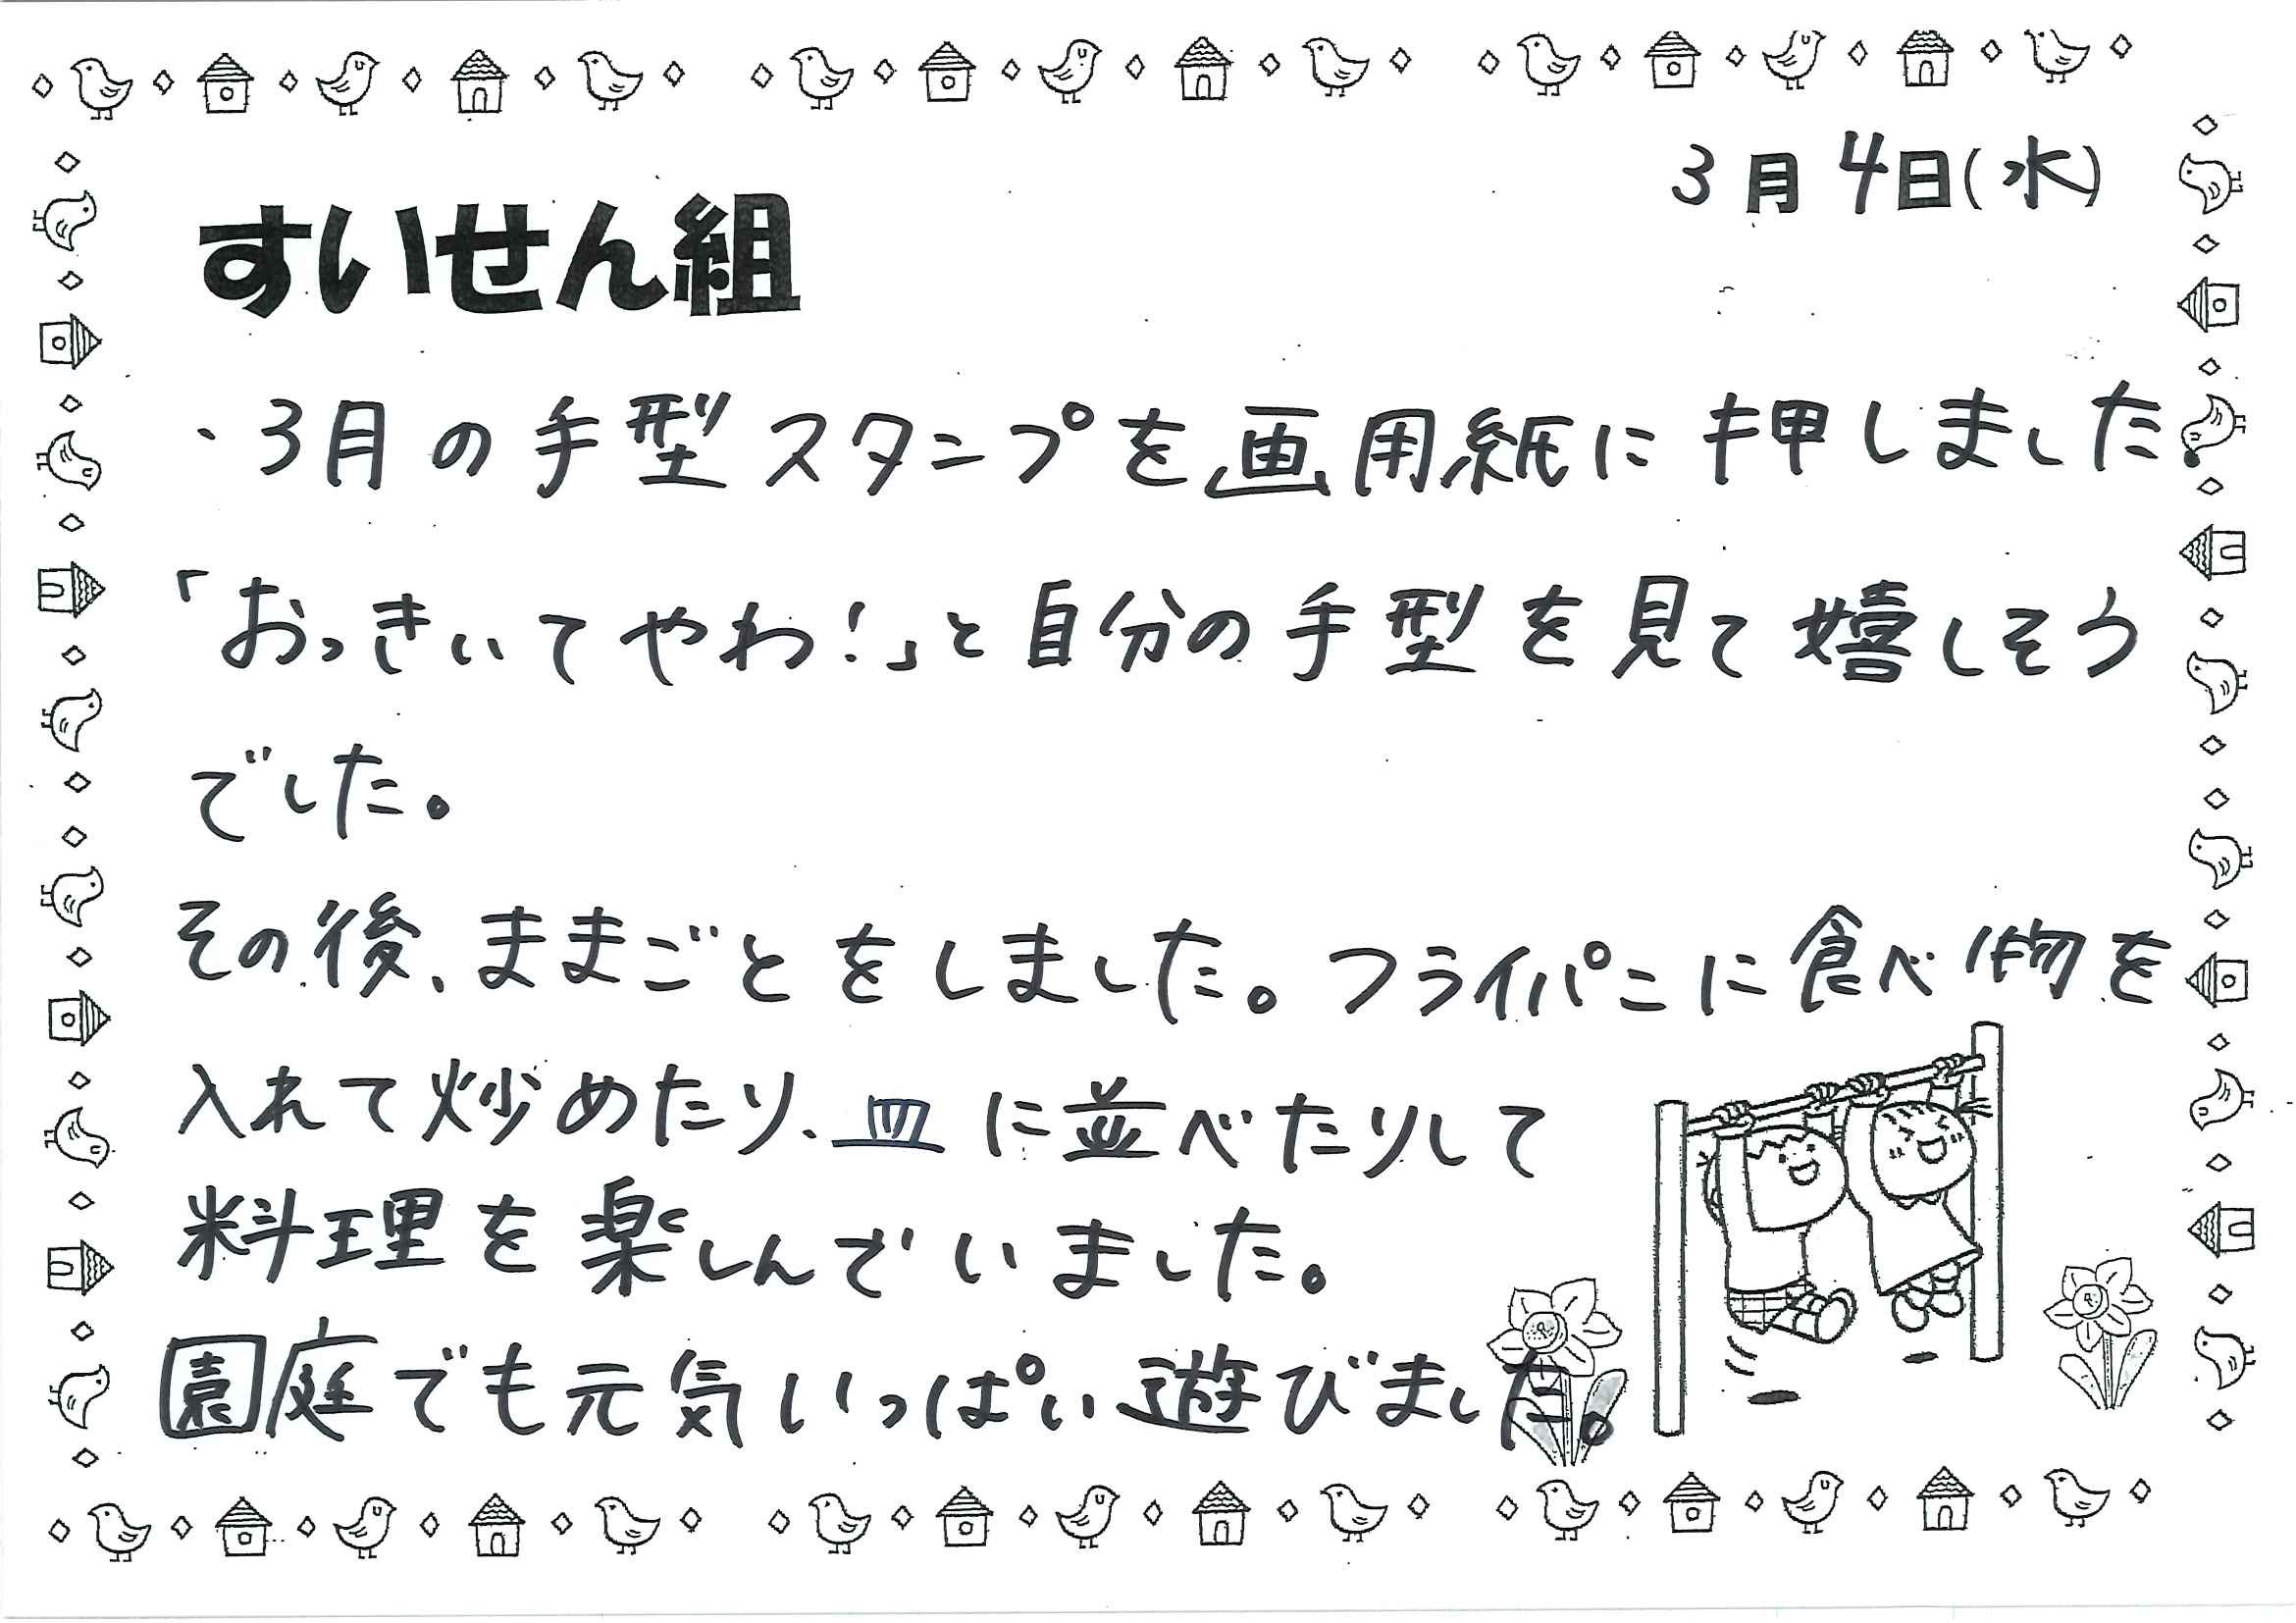 3月4日(水)
すいせん組
・3月の手型スタンプを画用紙に押しました。
「おっきいてやわ!」と自分の手型を見て嬉しそう
でした。
その後、ままごとをしました。フライパンに食べ物を
入れて炒めたり、皿に並べたりして
料理を楽しんでいました。
園庭でも元気いっぱい遊びました。